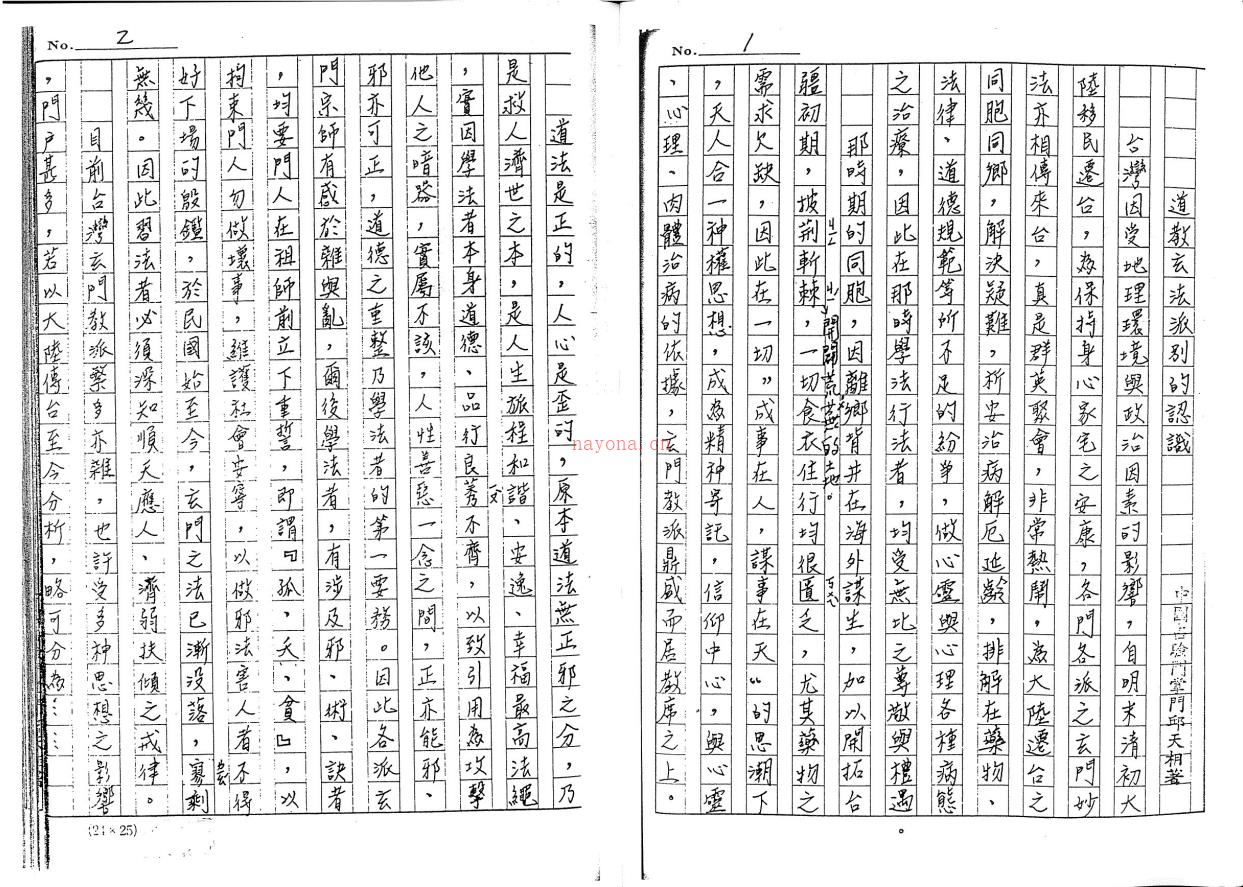 No. 1
道教玄法派別的認識
中國古驗門掌門邱天相著
台灣因受地理環境與政治因素的影響,自明末清初大
陸移民遷台,為保持身心家宅之安康,各門各派之玄門妙
法亦相傳來台,真是群英聚會,非常熱鬧,為大陸遷台之
同胞同鄉,解決疑難,祈安治病解厄延齡,排解在藥物、
法律、道德規範等所不足的紛爭,做心靈與心理各種病態
之治療,因此在那時學法行法者,均受無比之尊敬與禮遇。
那時期的同胞,因離鄉背井在海外謀生,加以開拓台
疆初期,披荆斬棘,開闢荒蕪的土地。一切食衣住行均很匱乏,尤其藥物之
需求欠缺,因此在一切〝成事在人,謀事在天〞的思潮下
,天人合一神權思想,成為精神寄託,信仰中心,與心靈
、心理、肉體治病的依據,玄門教派鼎盛而居教席之上。
No. 2
道法是正的,人心是歪的,原本道法無正邪之分,乃
是救人濟世之本,是人生旅程和諧、安逸、幸福最高法繩
,實因學法者本身道德、品行良莠不齊,以致引用為攻擊
他人之暗器,實屬不該,人性善惡一念之間,正亦能邪、
邪亦可正,道德之重整乃學法者的第一要務。因此各派玄
門宗師有感於雜與亂,爾後學法者,有涉及邪、術、訣者
,均要門人在祖師前立下重誓,即謂『孤、夭、貧』,以
拘束門人勿做壞事,維護社會安寧,以做邪法害人者不得
好下場的殷鑑,於民國始至今,玄門之法已漸沒落,寥剩
無幾。因此習法者必須深知順天應人、濟弱扶傾之戒律。
目前台灣玄門教派繁多亦雜,也許受多神思想之影響
,門戶甚多,若以大陸傳台至今分析,略可分為……
(24×25)
nayona.cn